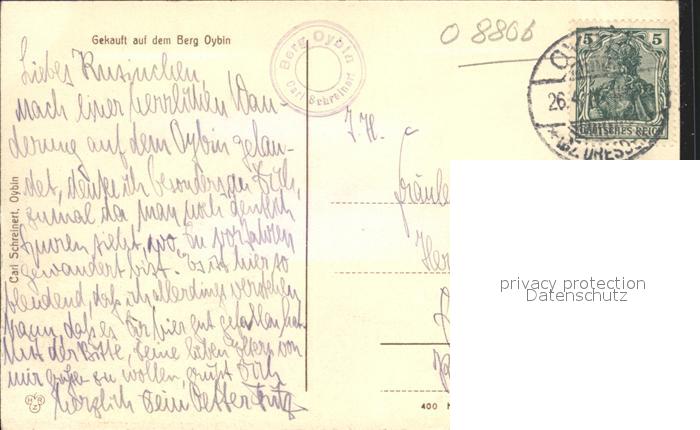 Gekauft auf dem Berg Oybin
Berg Oybin
Carl Schreinert
O 8806
5 5
DEUTSCHES REICH
26.
BZ. DRESDEN
Liebes Kusinchen,
Nach einer herrlichen Wan-
derung auf dem Oybin gelan-
det, denke ich besonders an Dich,
zumal da man noch deutlich
spuren sieht, wo Du vor Jahren
gewandert bist. Es ist hier so
blendend, daß ich allerdings verstehen
kann, daß es Dir hier gut gefallen hat.
Mit der Bitte, Deine lieben Eltern von
mir grüßen zu wollen, grüßt Dich
herzlich Dein Vetter Fritz
Carl Schreinert, Oybin
Fräule
400
privacy protection
Datenschutz